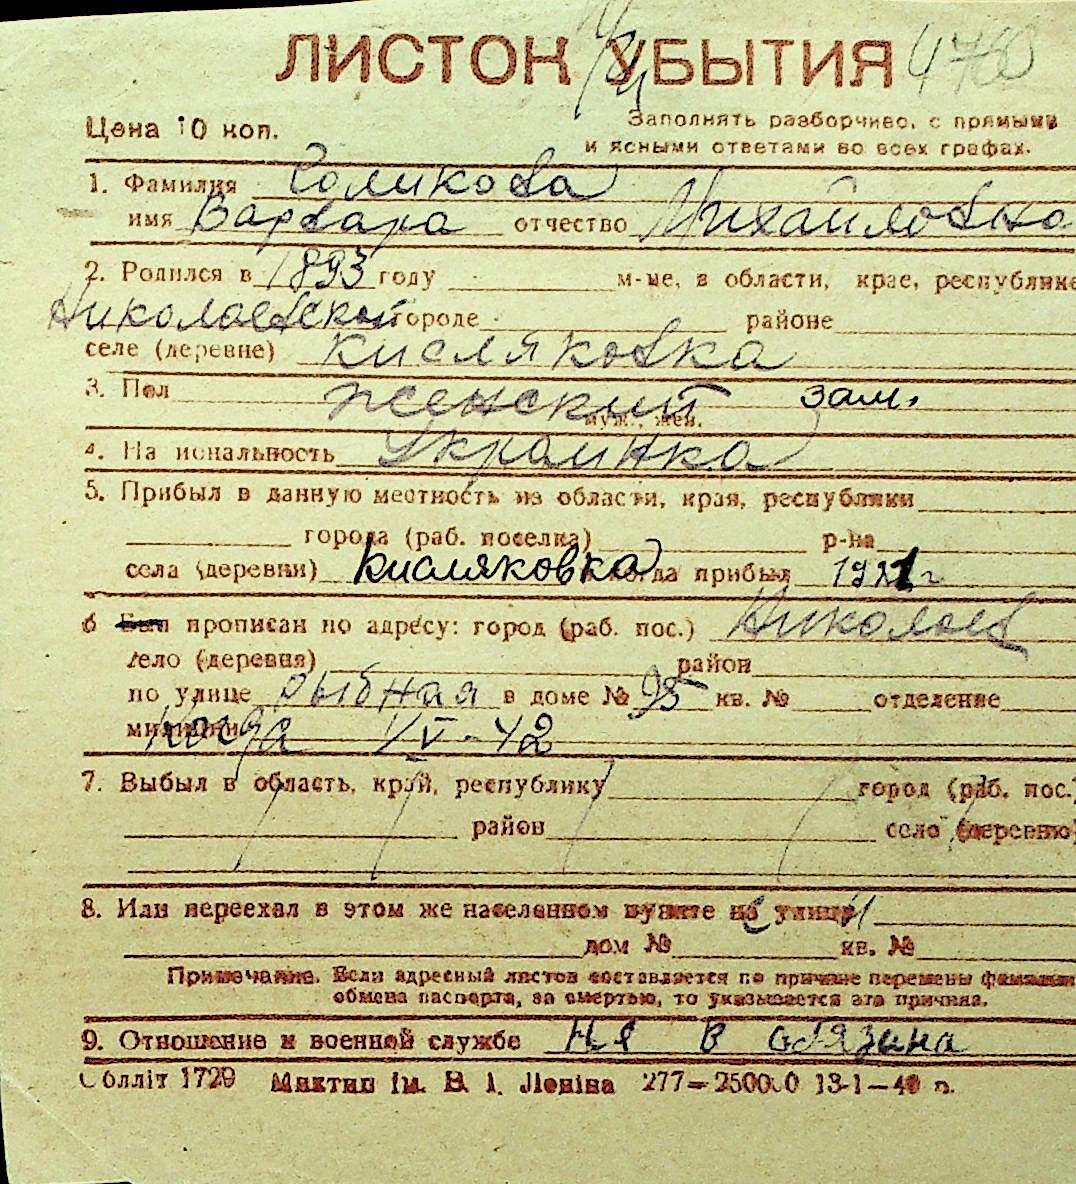 ЛИСТОК УБЫТИЯ
Цена 10 коп.
Заполнять разборчиво, с прямыми
и ясными ответами во всех графах.
1. Фамилия Голикова
имя Варвара отчество Михайловна
2. Родился в 1893 году м-це, в области, крае, республике
Николаевской городе районе
селе (деревне) Кисляковка
3. Пол женский зам.
муж., жен.
4. На иональность Украинка
5. Прибыл в данную местность из области, края, республики
города (раб. поселка) р-на
села (деревни) Кисляковка когда прибыл 1921 г
6 Был прописан по адресу: город (раб. пос.) Николаев
село (деревня) район
по улице Рыбная в доме № 95 кв. № отделение
милиции Когда IV-42
7. Выбыл в область, край, республику город (раб. пос.)
район село (деревню)
8. Или переехал в этом же населенном пункте на улицу
дом № кв. №
Примечание. Если адресный листок составляется по причине перемены фамилии
обмена паспорта, за смертью, то указывается эта причина.
9. Отношение к военной службе не в обязана
Облліт 1729 Миктип ім. В. І. Леніна 277—250000 13-1—40 р.